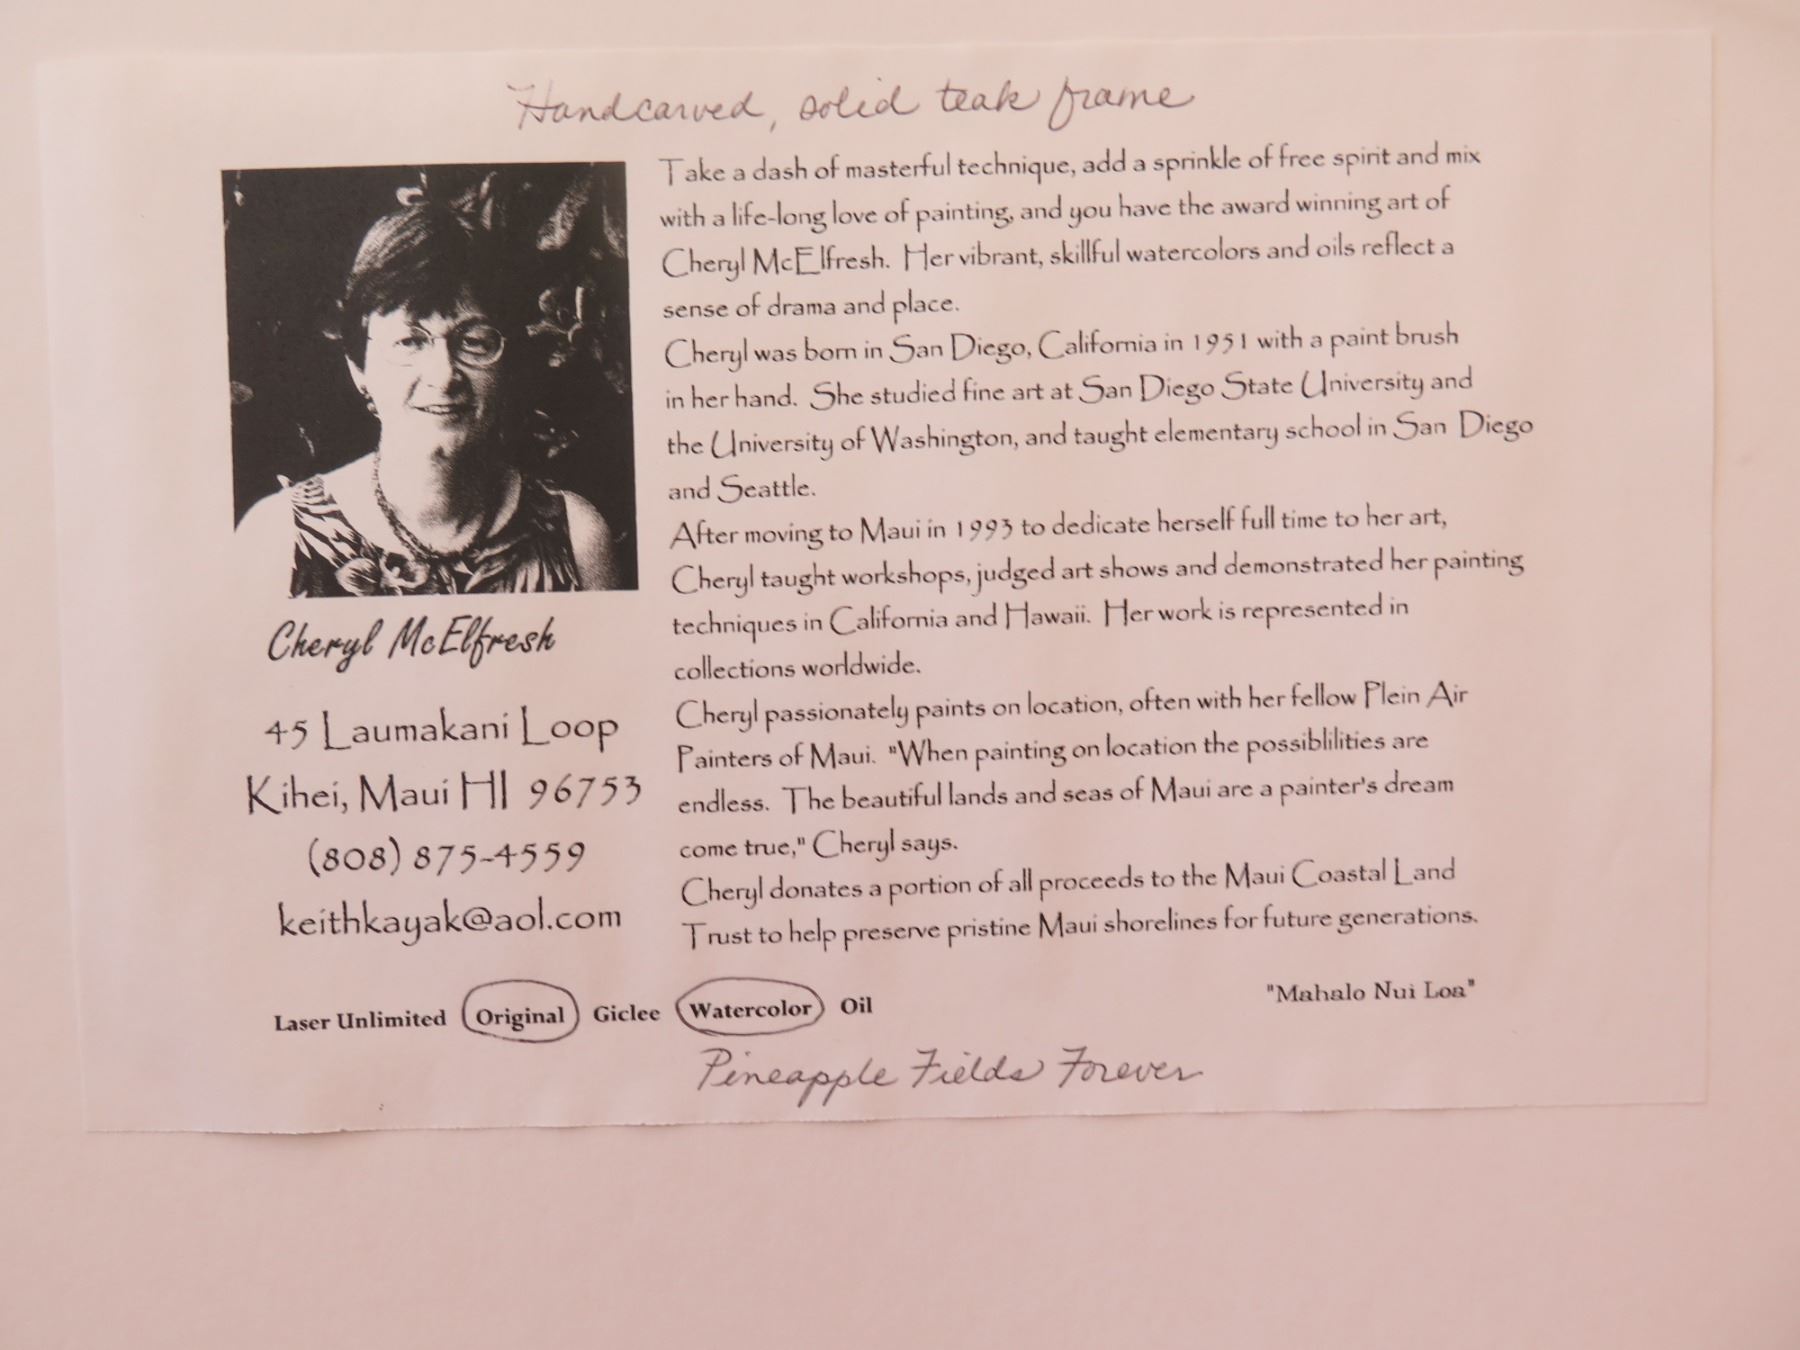 Handcarved, solid teak frame
Take a dash of masterful technique, add a sprinkle of free spirit and mix
with a life-long love of painting, and you have the award winning art of
Cheryl McElfresh. Her vibrant, skillful watercolors and oils reflect a
sense of drama and place.
Cheryl was born in San Diego, California in 1951 with a paint brush
in her hand. She studied fine art at San Diego State University and
the University of Washington, and taught elementary school in San Diego
and Seattle.
After moving to Maui in 1993 to dedicate herself full time to her art,
Cheryl taught workshops, judged art shows and demonstrated her painting
techniques in California and Hawaii. Her work is represented in
collections worldwide.
Cheryl passionately paints on location, often with her fellow Plein Air
Painters of Maui. "When painting on location the possiblilities are
endless. The beautiful lands and seas of Maui are a painter's dream
come true," Cheryl says.
Cheryl donates a portion of all proceeds to the Maui Coastal Land
Trust to help preserve pristine Maui shorelines for future generations.
"Mahalo Nui Loa"
Cheryl McElfresh
45 Laumakani Loop
Kihei, Maui HI 96753
(808) 875-4559
keithkayak@aol.com
Laser Unlimited Original Giclee Watercolor Oil
Pineapple Fields Forever